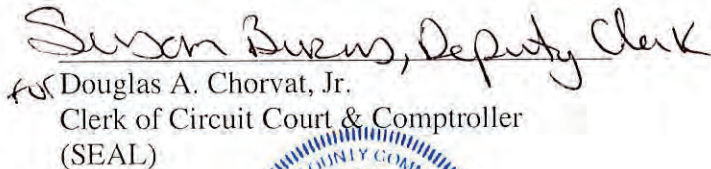 Susan Burns, Deputy Clerk
for Douglas A. Chorvat, Jr.
Clerk of Circuit Court & Comptroller
(SEAL)
COUNTY COM